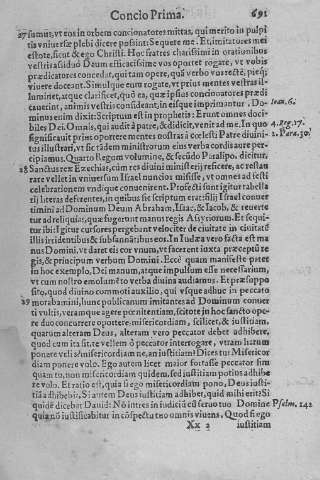 Concio Prima. 691
27 sumus, vt eos in orbem concionatores mittas, qui merito in pulpitis vniuersæ plebi dicere possint: Sequere me. Et, imitatores mei
estote, sicut & ego Christi. Hoc fratres charissimi in orationibus
vestris assiduò Deum efficacissime vos oportet rogate, vt vobis
prædicatores concedat, qui tam opere, quā verbo vos rectè, pieq;
viuere doceant. Simulque eum rogate, vt prius mentes vestras illuminet, atque clarificet, quò ea, quæ ipsius concionatores prædicauerint, animis vestris considerent, in eisque imprimantur. Dominus enim dixit: Scriptum est in prophetis: Erunt omnes doci- Ioan. 6.
biles Dei. Omnis, qui audit à patre, & didicit, venit ad me. In quo 4. Reg. 17.
significauit prius oportere mentes nostras à cœlesti Patre diuini- 2. Para. 30.
tus illustrari, vt sic tādem ministrorum eius verba corda aure percipiamus. Quarto Regum volumine, & secūdo Paralipo. dicitur,
28 Sanctus rex Ezechias, cùm res diuini ministerij reficere, ac restaurare vellet in vniuersum Israel nuncios misisse, vt omnes ad festi
celebrationem vndique conuenirent. Profecti sunt igitur tabellarij literas deferentes, in quibus sic scriptum erat: filij Israel conuertimini ad Dominum Deum Abraham, Isaac, & Iacob, & reuertetur ad reliquias, quæ fugerunt manus regis Assyriorum. Et sequitur ibi: Igitur cursores pergebant velociter de ciuitate in ciuitatē
illis irridentibus & subsannātibus eos. In Iudæa verò facta est manus Domini, vt daret eis cor vnum, vt facerent iuxta præceptū regis, & principum verbum Domini. Ecce quàm manifeste patet
in hoc exemplo, Dei manum, atque impulsum esse necessarium,
vt cum nostro emolumēto verba diuina audiamus. Et præsupposito, quòd diuino commoti auxilio, qui vsque adhuc in peccato
29 morabamini, hunc publicanum imitantes ad Dominum conuerti vultis, veramque agere pœnitentiam, scitote in hoc sancto opere duo concurrere oportere. misericordiam, scilicet, & iustitiam,
quarum alteram Deus, alteram verò peccator debet adhibere,
quod cum ita sit, te vellem ô peccator interrogare, vtram harum
ponere velis? misericordiam ne, an iustitiam? Dices tu: Misericordiam ponere volo. Ego autem licet maior fortasse peccator sim
quàm tu, non misericordiam quidem, sed iustitiam potius adhibere volo. Et ratio est, quia si ego misericordiam pono, Deus iustitiā adhibebit. Si autem Deus iustitiam adhibet, quid mihi erit? Siquidē dicebat Dauid: Nō intres in iudiciū cū seruo tuo Domine Psalm. 142
quia nō iustificabitur in cōspectu tuo omnis viuens. Quòd si ego
Xx 2 iustitiam